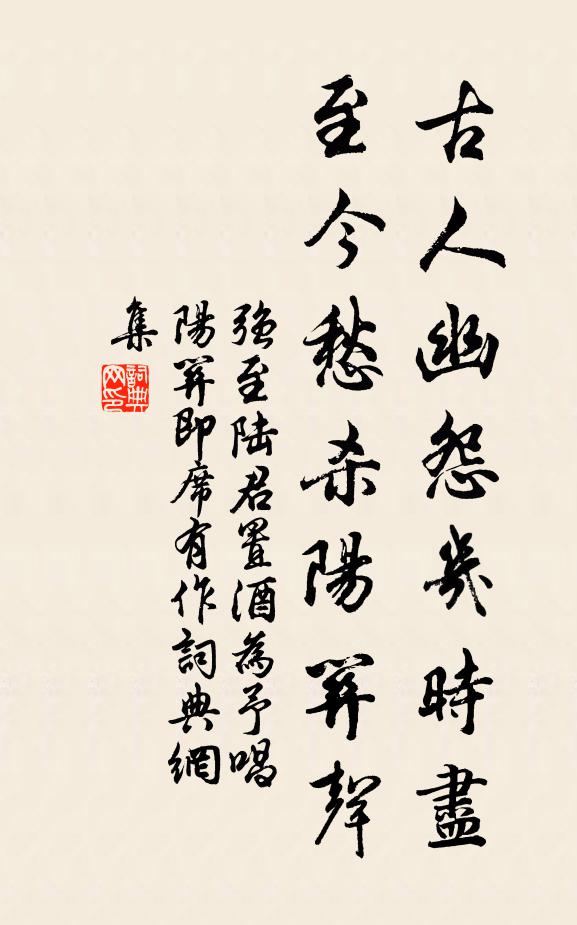 古人幽怨幾時盡
至今愁杀陽関聲
強至陆君置酒為予唱
陽関即席有作詞典網
集
詞典
网印